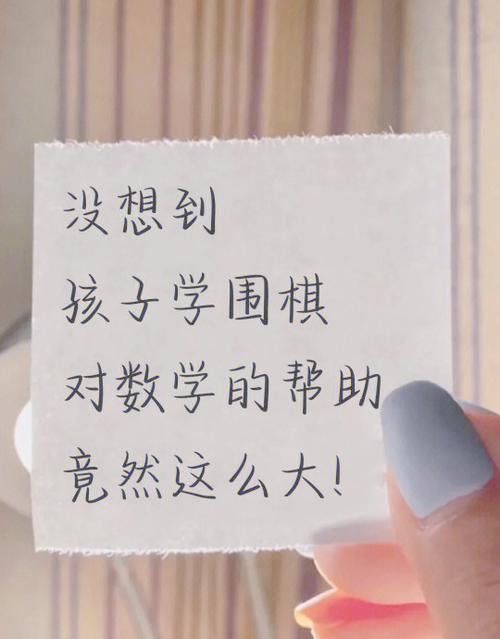 没想到
孩子学围棋
对数学的帮助
竟然这么大！